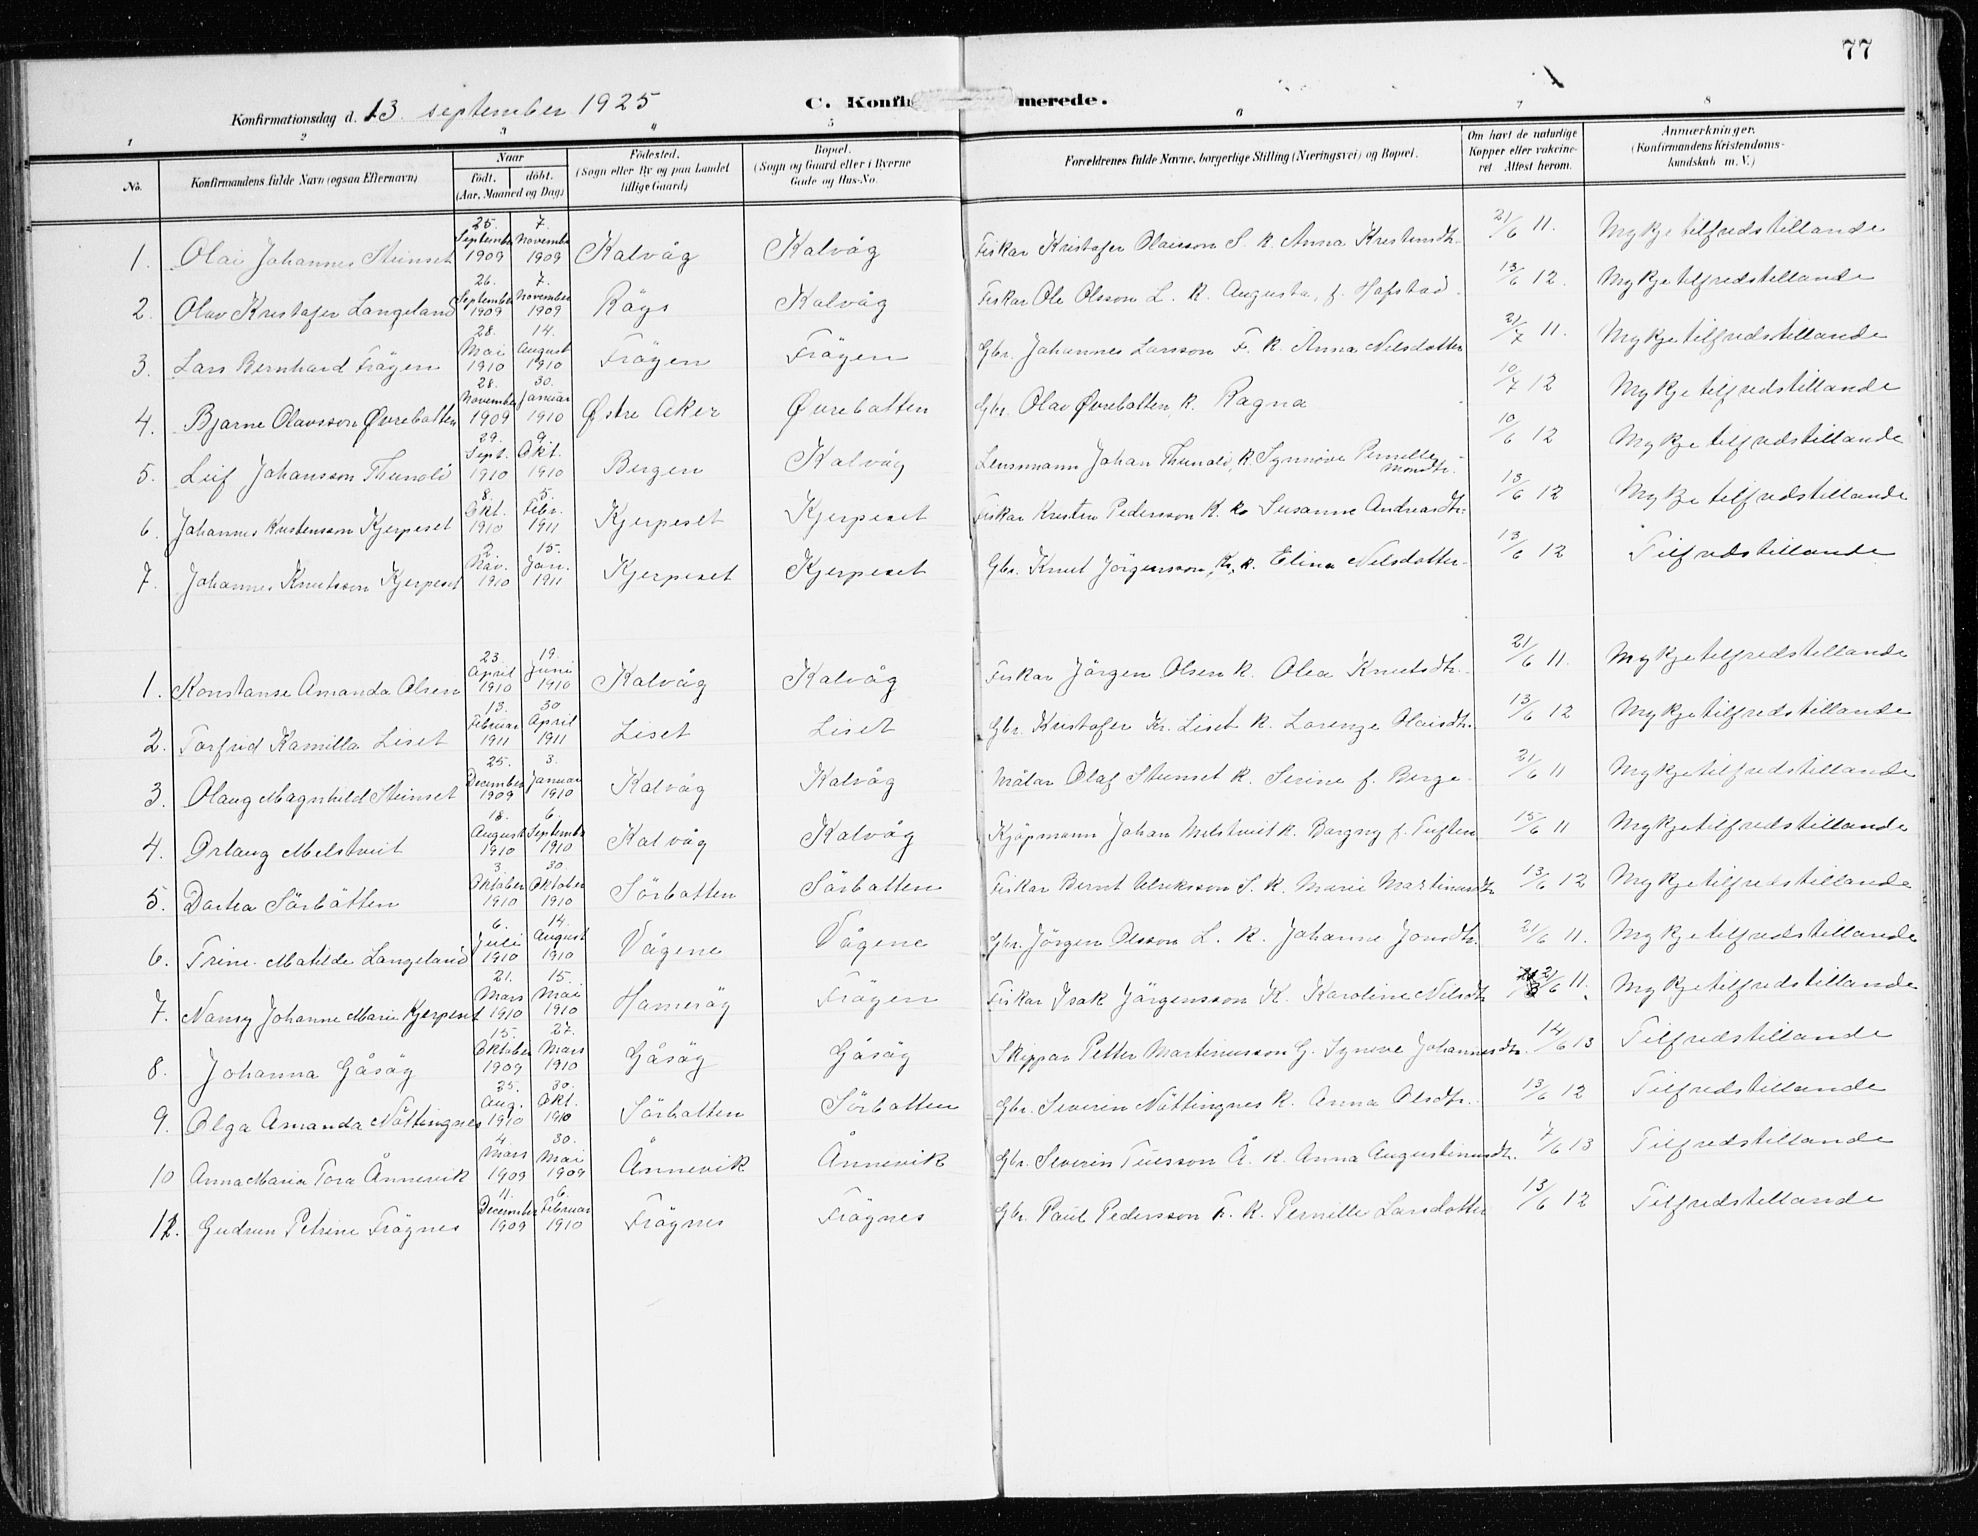 77
Konfirmationsdag d. 13. september 1925 C. Konfir merede.
1 2 3 4 5 6 7 8
No. Konfirmandens fulde Navn (ogsaa Efternavn) Naar født. døbt. (Aar, Maaned og Dag) Fødested. (Sogn eller By og paa Landet tillige Gaard) Bopæl. (Sogn og Gaard eller i Byerne Gade og Hus-No. Forældrenes fulde Navne, borgerlige Stilling (Næringsvei) og Bopæl. Om havt de naturlige Kopper eller vakcineret Attest herom. Anmærkninger. (Konfirmandens Kristendomskundskab m. V.)
1. Olai Johannes Steinset 25. September 1909 7. November 1909 Kalvåg Kalvåg Fiskar Kristofer Olaisson S. k. Anna Kristensdtr. 21/6 11. Mykje tilfredstillande
2. Olav Kristofer Langeland 26. September 1909 7. November 1909 Rågs Kalvåg Fiskar Ole Olsson L. k. Augusta, f. Hafstad. 13/6 12. Mykje tilfredstillande
3. Lars Bernhard Frøyen 28. Mai 1910 14. August 1910 Frøyen Frøyen Gbr. Johannes Larsson F. k. Anna Nilsdotter 21/7 11. Mykje tilfredstillande
4. Bjarne Olavsson Øvrebotten 28. November 1909 30. Januar 1910 Østre Aker Øvrebotten Gbr. Olav Øvrebotten k. Ragna 10/7 12 Mykje tilfredstillande
5. Leif Johansson Thunold 29. Sept. 1910 9. Okt. 1910 Bergen Kalvåg Lensmann Johan Thunold, k. Synnøve Pernille Monsdtr. 10/6 12 Mykje tilfredstillande
6. Johannes Kristensson Kjerpeset 8. Okt. 1910 5. Febr. 1911 Kjerpeset Kjerpeset Fiskar Kristen Pedersson K. k. Susanne Andreasdtr. 13/6 12 Mykje tilfredstillande
7. Johannes Knutsson Kjerpeset 2. Nov. 1910 15. Jan. 1911 Kjerpeset Kjerpeset Gbr. Knut Jørgensson, K. k. Elina Nilsdotter. 13/6 12 Tilfredstillande
1. Konstanse Amanda Olsen 23. April 1910 19. Juni 1910 Kalvåg Kalvåg Fiskar Jørgen Olsen k. Olea Knutsdtr. 21/6 11. Mykje tilfredstillande
2. Torfrid Kamilla Liset 13. Februar 1911 30 April 1911 Liset Liset Gbr. Kristofer Kr. Liset k. Lorenze Olaisdtr. 13/6 12 Mykje tilfredstillande
3. Olaug Magnhild Steinset 25. December 1909 3. Januar 1910 Kalvåg Kalvåg Målar Olaf Steinset k. Serine f. Berge. 21/6 11 Mykje tilfredstillande
4. Orlaug Melstveit 18. August 1910 6. September 1910 Kalvåg Kalvåg Kjøpmann Johan Melstveit k. Borgny f. Tuften 15/6 11 Mykje tilfredstillande
5. Dortea Sørbotten 3. Oktober 1910 30 Oktober 1910 Sørbotten Sørbotten Fiskar Bernt Ulriksson S. k. Marie Martinusdtr. 13/6 12 Mykje tilfredstillande
6. Trine Matilde Langeland 6. Juli 1910 14. August 1910 Vågene Vågene Gbr. Jørgen Olsson L. k. Johanne Jonsdtr. 21/6 11. Mykje tilfredstillande
7. Nancy Johanne Marie Kjerpeset 21. Mars 1910 15. Mai 1910 Hamerøy Frøyen Fiskar Isak Jørgensson K. Karoline Nilsdtr. 21/6 11. Mykje tilfredstillande
8. Johanna Gåsøy 15. Oktober 1909 27. Mars 1910 Gåsøy Gåsøy Skippar Petter Martinusson G. Synøve Johannesdtr. 14/6 13 Tilfredstillande
9. Olga Amanda Nøttingnes 25. Aug. 1910 30. Okt. 1910 Sørbotten Sørbotten Gbr. Severin Nøttingnes k. Anna Olsdtr. 13/6 12 Tilfredstillande
10 Anna Maria Tora Ånnevik 4. Mars 1909 30. Mai 1909 Ånnevik Ånnevik Gbr. Severin Tuesson Å. k. Anna Augustinusdtr. 7/6 13 Tilfredstillande
11. Gudrun Petrine Frøynes 11. December 1909 6. Februar 1910 Frøynes Frøynes Gbr. Paul Pedersson F. k. Pernille Larsdotter 13/6 12 Tilfredstillande